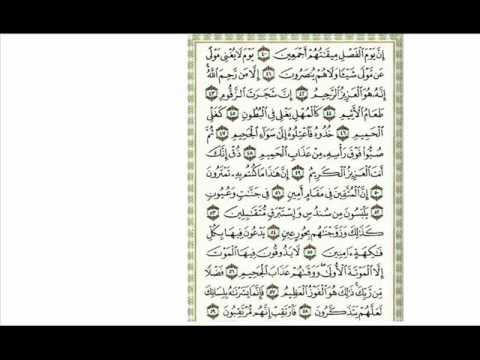 إِنَّ يَوْمَ ٱلْفَصْلِ مِيقَٰتُهُمْ أَجْمَعِينَ ٤٠ يَوْمَ لَا يُغْنِى مَوْلًى
عَن مَّوْلًى شَيْـًٔا وَلَا هُمْ يُنصَرُونَ ٤١ إِلَّا مَن رَّحِمَ ٱللَّهُ
إِنَّهُۥ هُوَ ٱلْعَزِيزُ ٱلرَّحِيمُ ٤٢ إِنَّ شَجَرَتَ ٱلزَّقُّومِ ٤٣
طَعَامُ ٱلْأَثِيمِ ٤٤ كَٱلْمُهْلِ يَغْلِى فِى ٱلْبُطُونِ ٤٥ كَغَلْىِ
ٱلْحَمِيمِ ٤٦ خُذُوهُ فَٱعْتِلُوهُ إِلَىٰ سَوَآءِ ٱلْجَحِيمِ ٤٧ ثُمَّ
صُبُّوا۟ فَوْقَ رَأْسِهِۦ مِنْ عَذَابِ ٱلْحَمِيمِ ٤٨ ذُقْ إِنَّكَ
أَنتَ ٱلْعَزِيزُ ٱلْكَرِيمُ ٤٩ إِنَّ هَٰذَا مَا كُنتُم بِهِۦ تَمْتَرُونَ
٥٠ إِنَّ ٱلْمُتَّقِينَ فِى مَقَامٍ أَمِينٍ ٥١ فِى جَنَّٰتٍ وَعُيُونٍ
٥٢ يَلْبَسُونَ مِن سُندُسٍ وَإِسْتَبْرَقٍ مُّتَقَٰبِلِينَ ٥٣
كَذَٰلِكَ وَزَوَّجْنَٰهُم بِحُورٍ عِينٍ ٥٤ يَدْعُونَ فِيهَا بِكُلِّ
فَٰكِهَةٍ ءَامِنِينَ ٥٥ لَا يَذُوقُونَ فِيهَا ٱلْمَوْتَ
إِلَّا ٱلْمَوْتَةَ ٱلْأُولَىٰ وَوَقَىٰهُمْ عَذَابَ ٱلْجَحِيمِ ٥٦ فَضْلًا
مِّن رَّبِّكَ ذَٰلِكَ هُوَ ٱلْفَوْزُ ٱلْعَظِيمُ ٥٧ فَإِنَّمَا يَسَّرْنَٰهُ بِلِسَانِكَ
لَعَلَّهُمْ يَتَذَكَّرُونَ ٥٨ فَٱرْتَقِبْ إِنَّهُم مُّرْتَقِبُونَ ٥٩